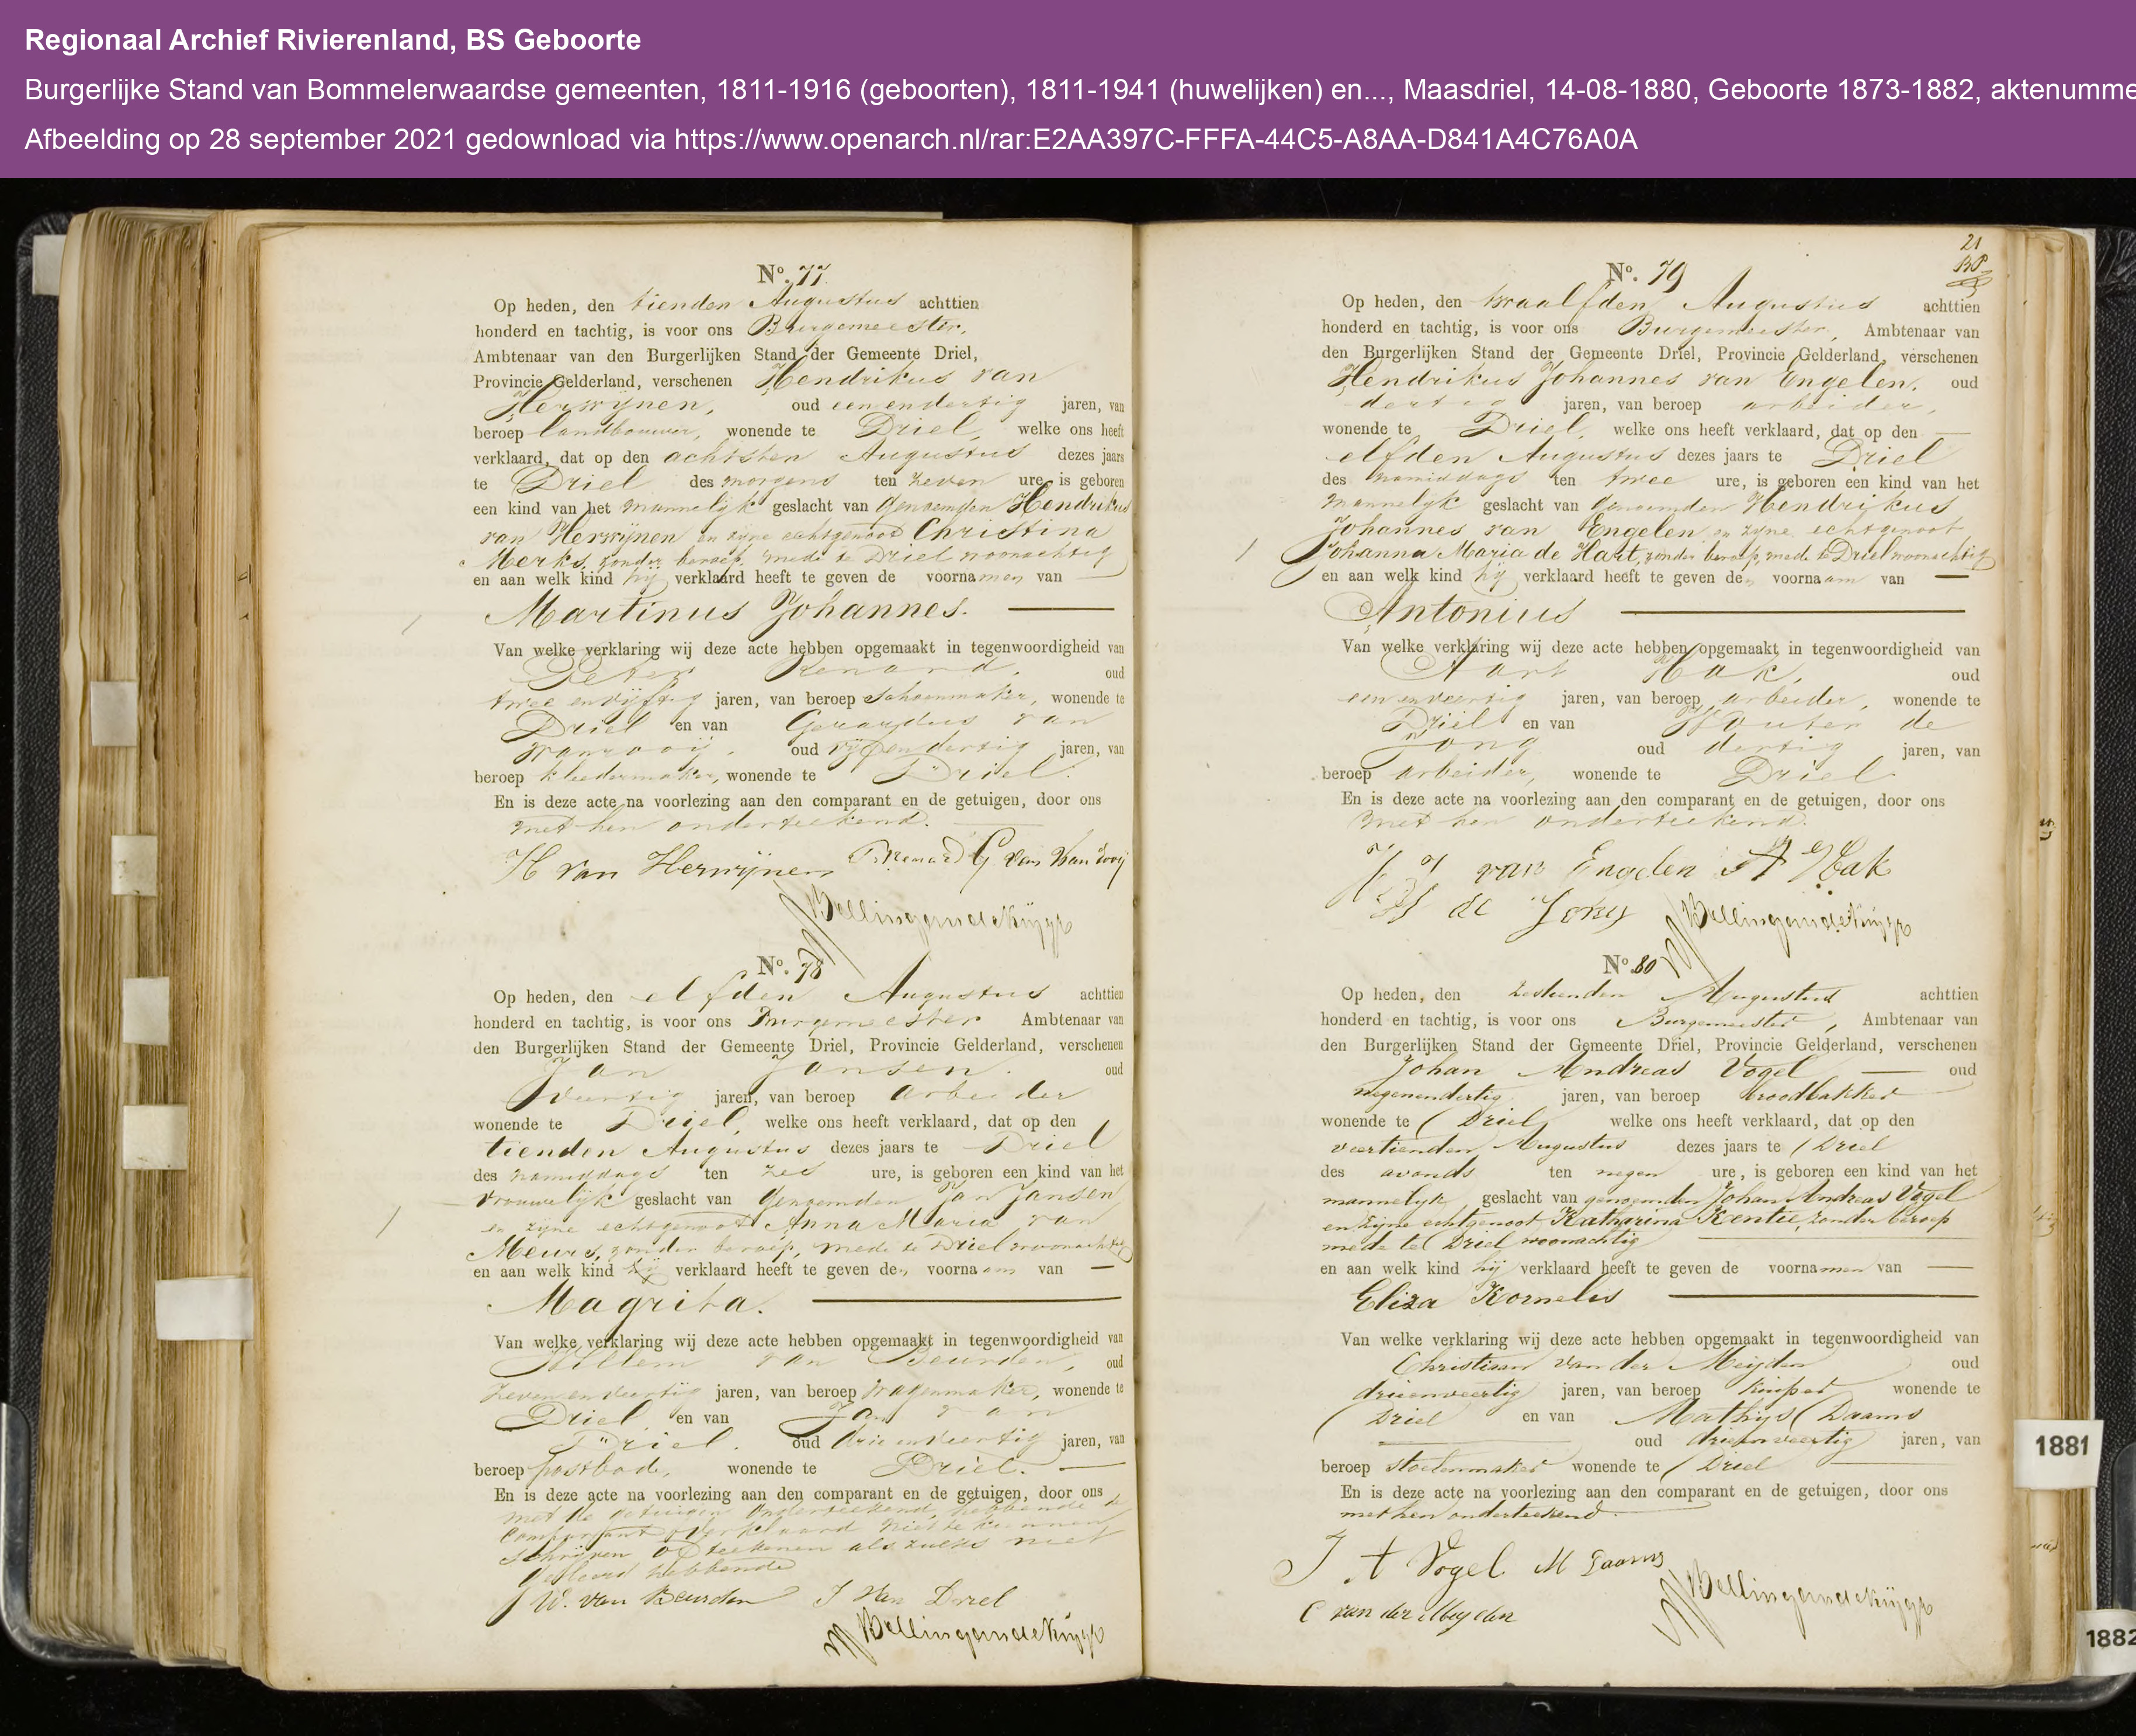 Regionaal Archief Rivierenland, BS Geboorte
Burgerlijke Stand van Bommelerwaardse gemeenten, 1811-1916 (geboorten), 1811-1941 (huwelijken) en..., Maasdriel, 14-08-1880, Geboorte 1873-1882, aktenumme
Afbeelding op 28 september 2021 gedownload via https://www.openarch.nl/rar:E2AA397C-FFFA-44C5-A8AA-D841A4C76A0A
No. 77
Op heden, den tienden Augustus achttien
honderd en tachtig, is voor ons Burgemeester,
Ambtenaar van den Burgerlijken Stand der Gemeente Driel,
Provincie Gelderland, verschenen Hendrikus van
Herwijnen, oud eenendertig jaren, van
beroep landbouwer, wonende te Driel, welke ons heeft
verklaard, dat op den achtsten Augustus dezes jaars
te Driel des morgens ten zeven ure, is geboren
een kind van het mannelijk geslacht van genoemden Hendrikus
van Herwijnen en zijne echtgenoot Christina
Merks, zonder beroep, mede te Driel woonachtig
en aan welk kind hij verklaard heeft te geven de voornamen van
Martinus Johannes.
Van welke verklaring wij deze acte hebben opgemaakt in tegenwoordigheid van
Peter Renard, oud
twee en vijftig jaren, van beroep schoenmaker, wonende te
Driel en van Gerardus van
Wanrooij, oud vijfendertig jaren, van
beroep kleedermaker, wonende te Driel.
En is deze acte na voorlezing aan den comparant en de getuigen, door ons
met hen onderteekend.
H van Herwijnen P. Renard G. van Wanrooij
No. 78
Op heden, den elfden Augustus achttien
honderd en tachtig, is voor ons Burgemeester Ambtenaar van
den Burgerlijken Stand der Gemeente Driel, Provincie Gelderland, verschenen
Jan Jansen. oud
veertig jaren, van beroep arbeider
wonende te Driel, welke ons heeft verklaard, dat op den
tienden Augustus dezes jaars te Driel
des namiddags ten zes ure, is geboren een kind van het
vrouwelijk geslacht van genoemden Jan Jansen
en zijne echtgenoot Anna Maria van
Meurs, zonder beroep, mede te Driel woonachtig
en aan welk kind hij verklaard heeft te geven den voornaam van
Magrita.
Van welke verklaring wij deze acte hebben opgemaakt in tegenwoordigheid van
Willem van Beurden, oud
zevenenveertig jaren, van beroep wagenmaker, wonende te
Driel en van Jan van
Driel. oud drie en veertig jaren, van
beroep postbode, wonende te Driel.
En is deze acte na voorlezing aan den comparant en de getuigen, door ons
met de getuigen onderteekend, hebbende de
comparant verklaard niet te kunnen
schrijven of teekenen als zulks niet
geleerd hebbende
W. van Beurden J van Driel
21
No. 79
Op heden, den twaalfden Augustus achttien
honderd en tachtig, is voor ons Burgemeester, Ambtenaar van
den Burgerlijken Stand der Gemeente Driel, Provincie Gelderland, verschenen
Hendrikus Johannes van Engelen. oud
dertig jaren, van beroep arbeider,
wonende te Driel, welke ons heeft verklaard, dat op den
elfden Augustus dezes jaars te Driel
des namiddags ten twee ure, is geboren een kind van het
mannelijk geslacht van genoemden Hendrikus
Johannes van Engelen en zijne echtgenoot
Johanna Maria de Hart, zonder beroep, mede te Driel woonachtig
en aan welk kind hij verklaard heeft te geven den voornaam van
Antonius
Van welke verklaring wij deze acte hebben opgemaakt in tegenwoordigheid van
Aart Hak, oud
een en veertig jaren, van beroep arbeider, wonende te
Driel en van Wouter de
Jong oud dertig jaren, van
beroep arbeider, wonende te Driel.
En is deze acte na voorlezing aan den comparant en de getuigen, door ons
met hen onderteekend.
H J van Engelen A Hak
W de Jong
No. 80
Op heden, den zestienden Augustus achttien
honderd en tachtig, is voor ons Burgemeester, Ambtenaar van
den Burgerlijken Stand der Gemeente Driel, Provincie Gelderland, verschenen
Johan Andreas Vogel oud
negenendertig jaren, van beroep broodbakker
wonende te Driel welke ons heeft verklaard, dat op den
veertienden Augustus dezes jaars te Driel
des avonds ten negen ure, is geboren een kind van het
mannelijk geslacht van genoemden Johan Andreas Vogel
en zijne echtgenoot Katharina Kentie, zonder beroep
mede te Driel woonachtig
en aan welk kind hij verklaard heeft te geven de voornamen van
Eliza Kornelis
Van welke verklaring wij deze acte hebben opgemaakt in tegenwoordigheid van
Christiaan van der Meijden oud
drieenveertig jaren, van beroep kuiper wonende te
Driel en van Mathijs Daams
oud drieenveertig jaren, van
beroep stoelenmaker wonende te Driel
En is deze acte na voorlezing aan den comparant en de getuigen, door ons
met hen onderteekend.
J A Vogel M Daams
C van der Meyden
1881
1882